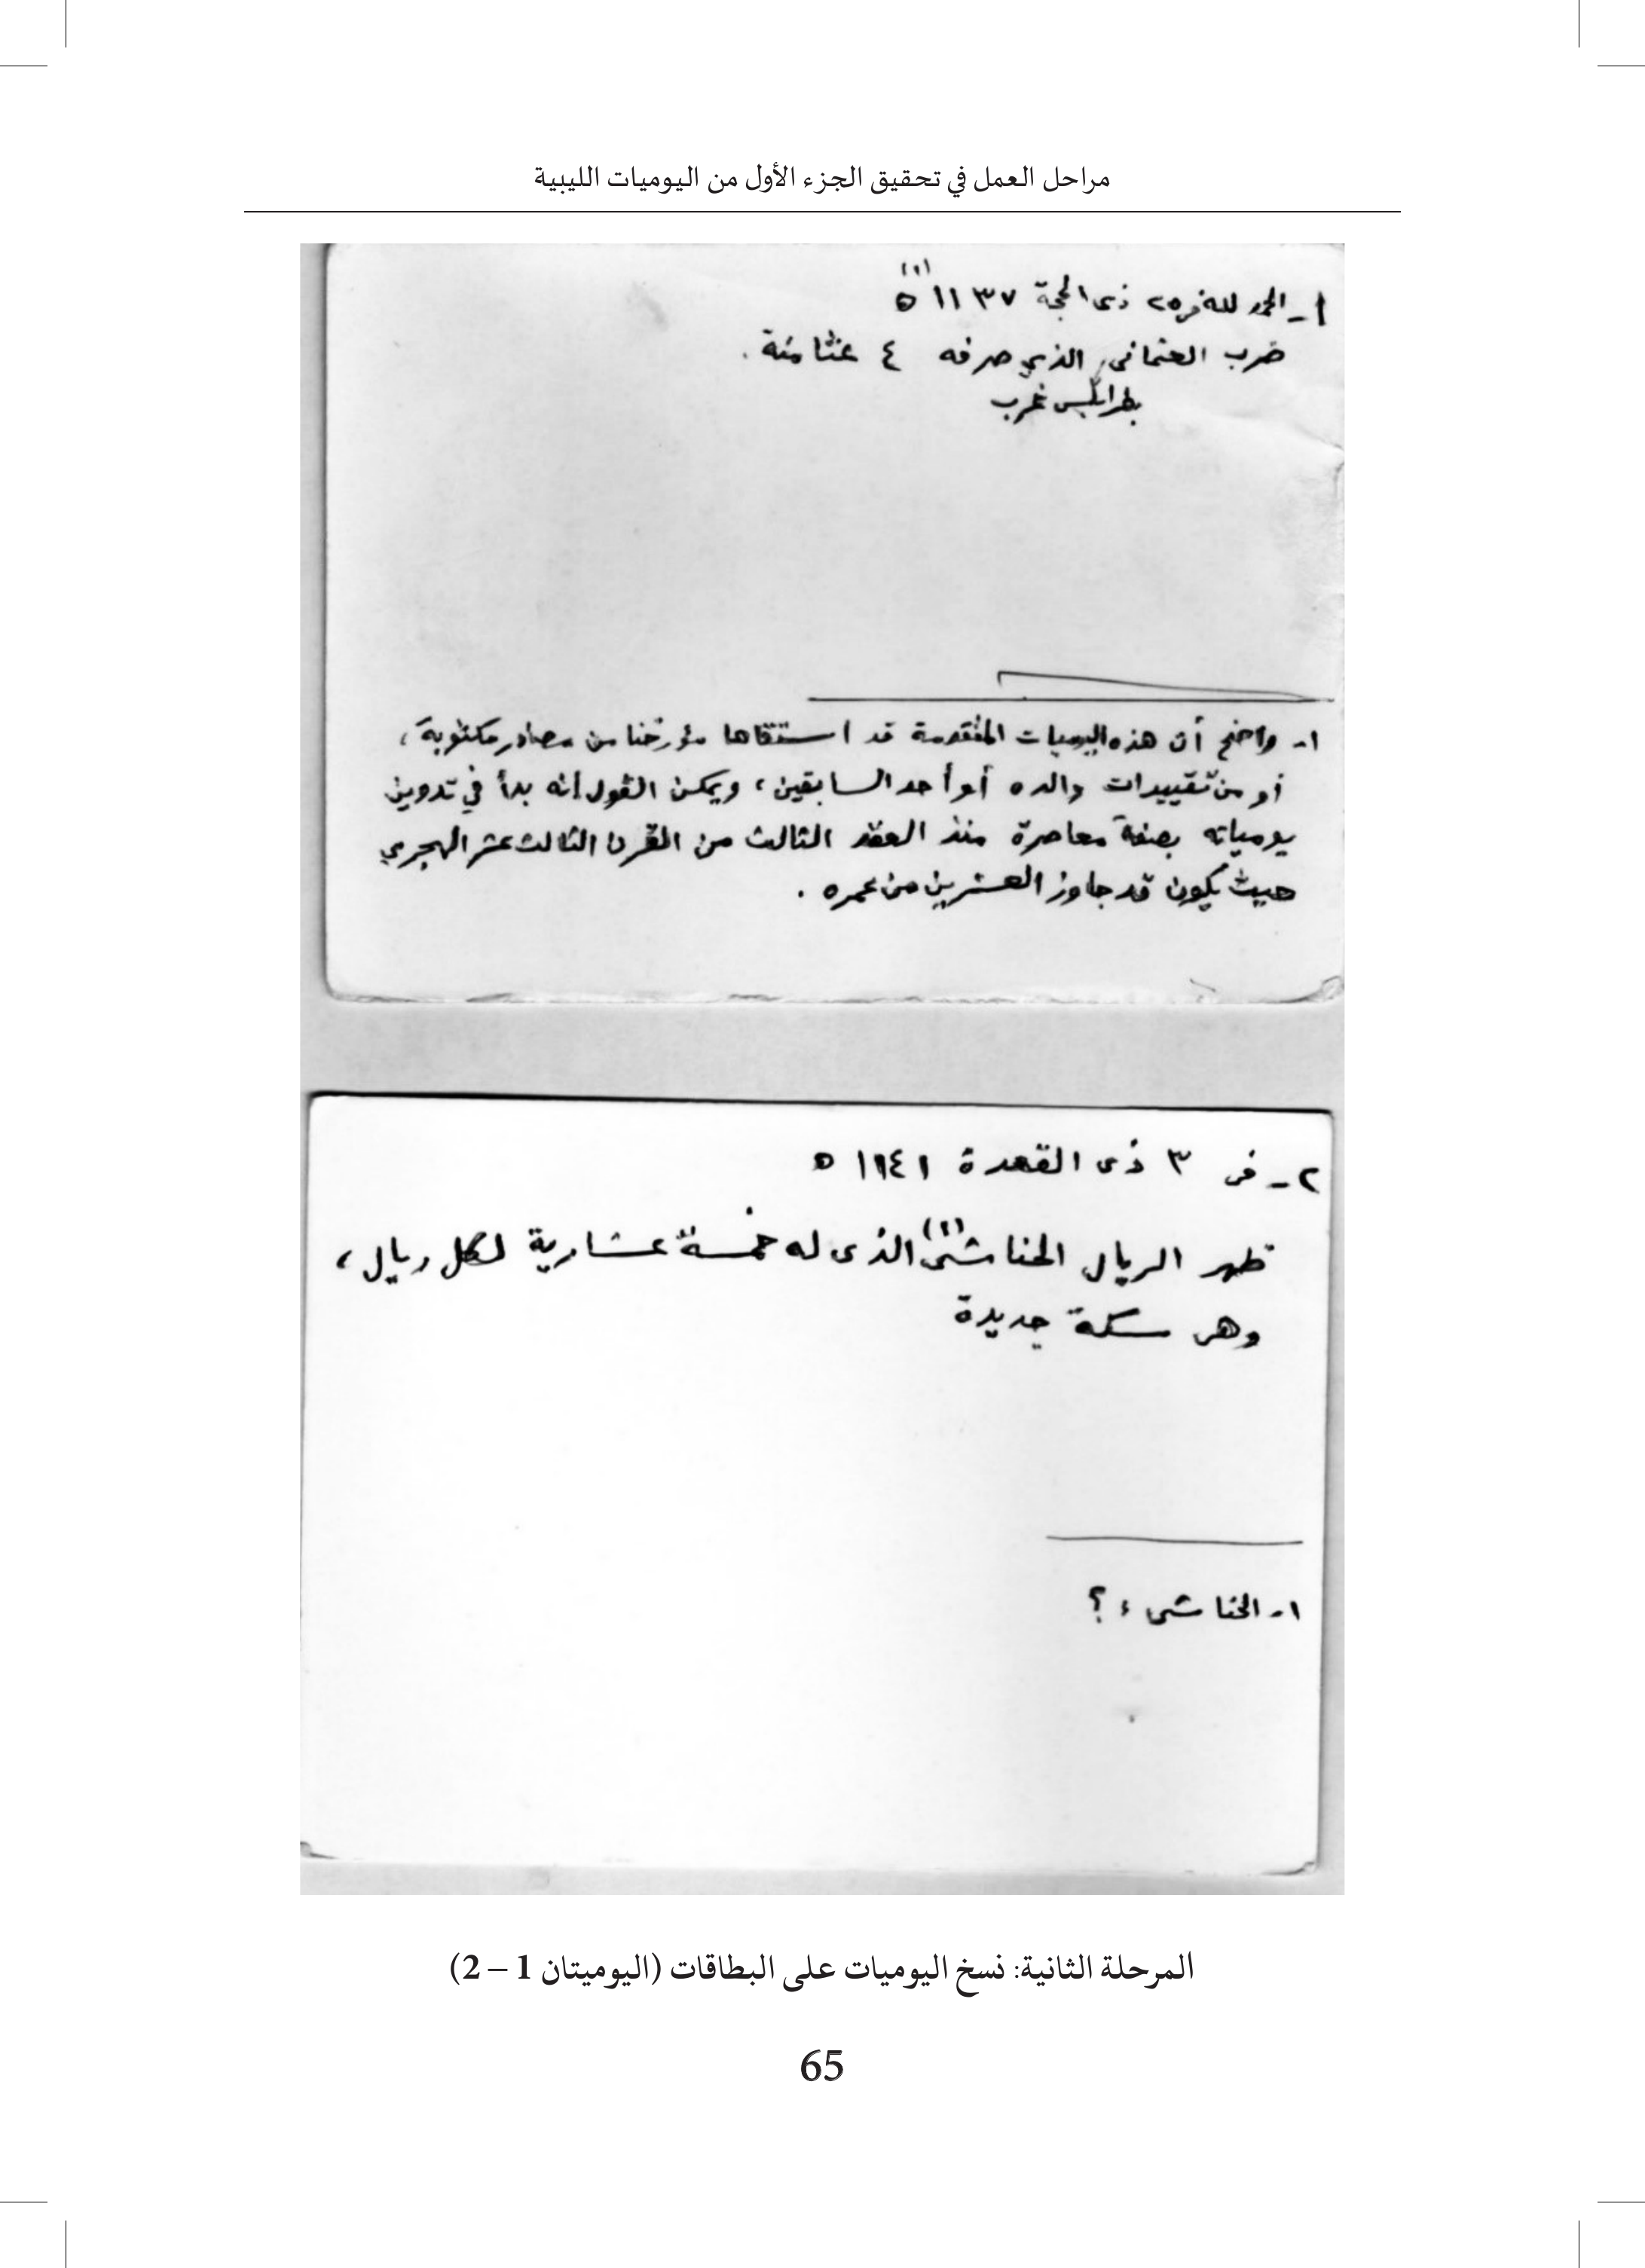 مراحل العمل في تحقيق الجزء الأول من اليوميات الليبية
١- الحمد لله في ٢٥ ذى الحجة ١١٣٧ ه (١)
ضرب العثمانى الذي صرفه ٤ عثامنة .
بطرابلس غرب
١- واضح أن هذه اليوميات المتقدمة قد استقاها مؤرخنا من مصادر مكتوبة ،
أو من تقييدات والده أو أحد السابقين ، ويمكن القول إنه بدأ في تدوين
يومياته بصفة معاصرة منذ العقد الثالث من القرن الثالث عشر الهجري
حيث يكون قد جاوز العشرين من عمره .
٢- فى ٣ ذى القعدة ١١٤١ ه
ظهر الريال الحناشى (١) الذى له خمسة عشارية لكل ريال ،
وهى سكة جديدة
١- الحناشى ؟
المرحلة الثانية: نسخ اليوميات على البطاقات (اليوميتان 1 – 2)
65